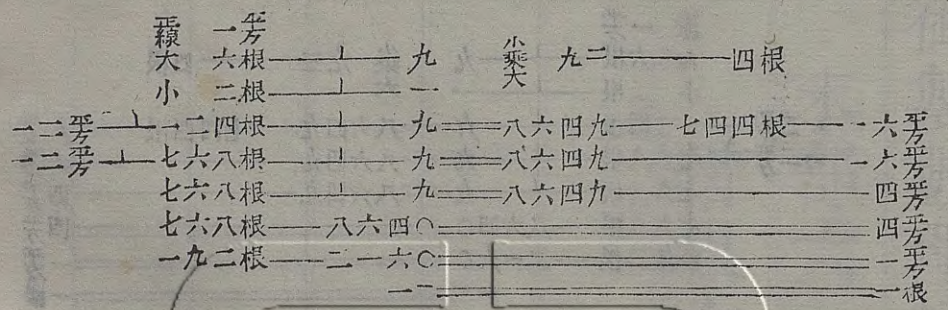 平線 一平方
大 六根——⊥——九 小乘大 九二——四根
小 二根——⊥——一
一二平方——⊥——二四根——⊥——九＝八六四九——七四四根——一六平方
一二平方——⊥——七六八根——⊥——九＝八六四九——一六平方
七六八根——⊥——九＝八六四九＝四平方
七六八根——八六四〇＝四平方
一九二根——二一六〇＝一平方
一二＝一根